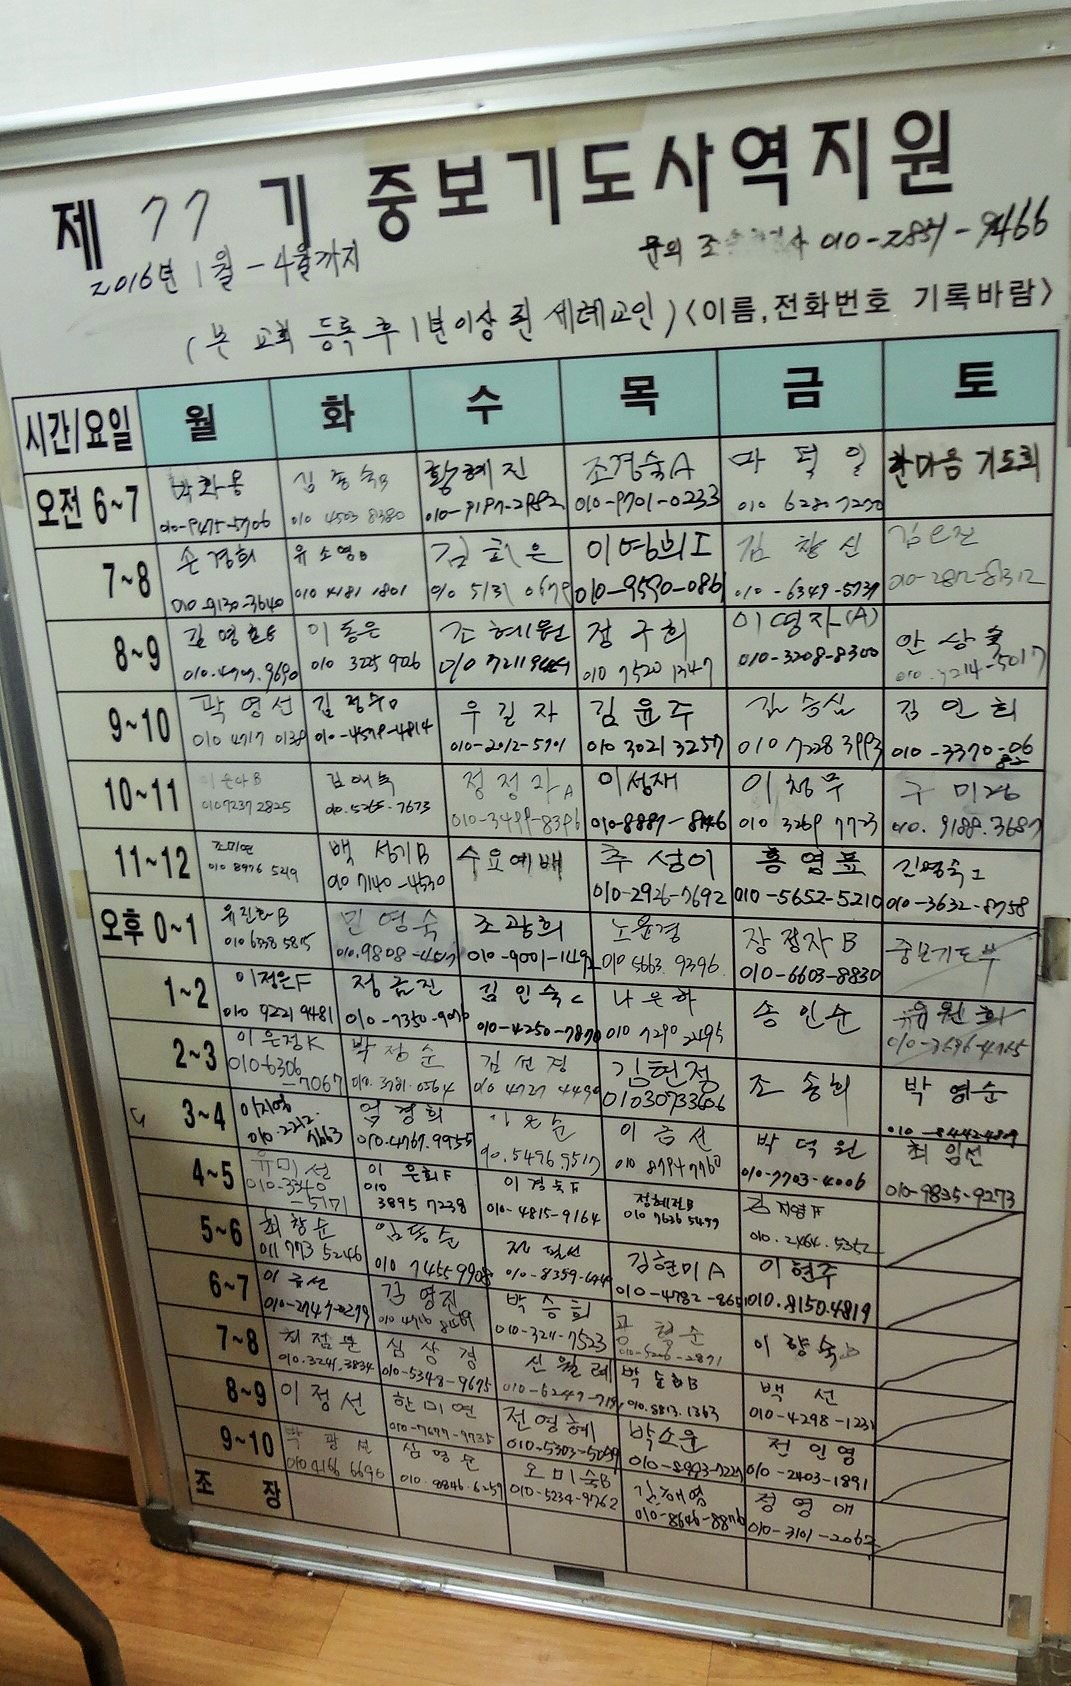 제 77 기 중보기도사역지원
2016년 1월-4월까지
문의 조 010-2851-9466
(본 교회 등록 후 1년이상 된 세례교인) <이름, 전화번호 기록바람>
시간/요일 월 화 수 목 금 토
오전 6~7 박화용 김종숙B 황혜진 조경숙A 마덕일 한마음 기도회
010-9475-5706 010 4503 8380 010-9197-2982 010-9701-0233 010 6280 7270
7~8 손경희 유소영D 김희은 이영희I 김창신
010 9130-3640 010 4181 1801 010 5131 0679 010-9590-086 010-6349-5739
8~9 김영호E 이동은 조혜원 정구희 이영자(A) 안상
010 3225 9026 010 7520 1347 010-3208-8300 010.7214-5017
9~10 곽영선 김정수D 우길자 김윤주 김승심 김인희
010 4717 0138 010-4578-4814 010-2012-5701 010 3021 3257 010 7228 3993 010-3370-06
10~11 김애녹 정정자A 이성재 이창무 구미
010 7237 2825 010.5265-7673 010-3499-8396 010-8887-8146 010 3269 7723 010. 9188.3687
11~12 조미연 백성기B 수요예배 추성이 홍영표 김명숙I
010 8976 5219 010 7140-4530 010-2926-7692 010-5652-5210 010-3632-8758
오후 0~1 유진화B 민영숙 조광희 노윤경 장정자B 중보기도부
010 6338 5815 010.9808-4517 010-9001-149 010 5663 9396 010-6603-8830
1~2 이정은F 정금진 김인숙C 나은하 송인순 유원화
010 9221 9481 010-7350-9070 010-4250-7870 010 7290 2495 010-3696-4765
2~3 이은정K 박정순 김선경 김현정 조송희 박영순
010-6306-7067 010.3781.0564 010 4727 4490 01030733606 010-8442-4809
3~4 이지영 엄경희 이은순 이금선 박덕원 최임선
010.2212. 010.4767.9955 010.5496.9517 010 8794 7760 010-7703-4006 010-9835-9273
4~5 유미선 이은희F 이경숙F 정혜전B 김지영F
010-3340-5171 010 3895 7238 010-4815-9164 010 7636 5499 010.2464.5352
5~6 최창순 임동순 전필선 김현미A 이현주
011 773 5246 010 7455 9908 010-8359-6449 010-4782-86 010.8150.4819
6~7 이금선 김영진 박승희 공혈순 이향숙
010-2747-0279 010 4716 8489 010-3211-7523 010-5226-2871
7~8 최점분 심상경 신월례 박순희B 백선
010.3241.3834 010-5348-9675 010-6247-719 010.5813.1363 010-4298-1231
8~9 이정선 한미연 전영혜 박소윤 전인영
010-7677-9735 010-5303-5099 010-8893-7227 010-2403-1891
9~10 박광선 심명순 오미숙B 김해영 정영애
010 4166 6696 010.8846.6257 010-5234-9762 010-8646-8876 010-3101-2062
조장